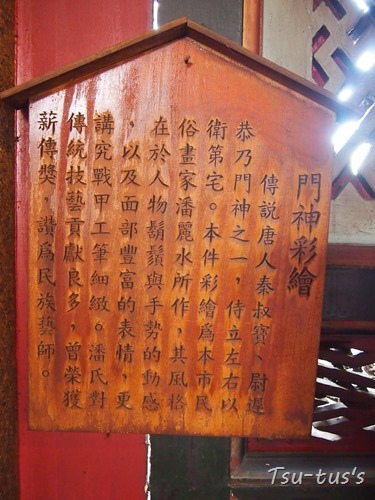 門神彩繪
傳説唐人秦叔寶、尉遲
恭乃門神之一，侍立左右以
衛第宅。本件彩繪爲本市民
俗畫家潘麗水所作，其風格
在於人物鬍鬚與手勢的動感
，以及面部豐富的表情，更
講究戰甲工筆細緻。潘氏對
傳統技藝貢獻良多，曾榮獲
薪傳獎，讚爲民族藝師。
Tsu-tus's